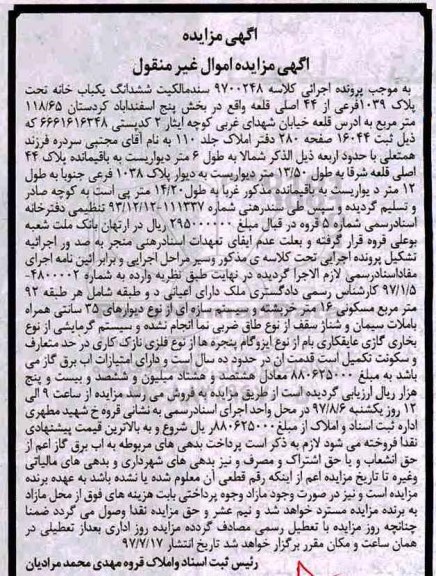 آگهی مزایده
آگهی مزایده اموال غیر منقول
به موجب پرونده اجرائی کلاسه ۹۷۰۰۲۴۸ سندمالکیت ششدانگ یکباب خانه تحت
پلاک ۱۰۳۹فرعی از ۴۴ اصلی قلعه واقع در بخش پنج اسفنداباد کردستان ۱۱۸/۶۵
متر مربع به ادرس قلعه خیابان شهدای غربی کوچه ایثار ۲ کدپستی ۶۶۶۱۶۱۶۳۴۸ که
ذیل ثبت ۱۶۰۴۴ صفحه ۲۸۰ دفتر املاک جلد ۱۱۰ به نام آقای مجتبی سردره فرزند
همتعلی با حدود اربعه ذیل الذکر شمالا به طول ۶ متر دیواریست به باقیمانده پلاک ۴۴
اصلی قلعه شرقا به طول ۱۳/۵۰ متر دیواریست به دیوار پلاک ۱۰۳۸ فرعی جنوبا به طول
۱۲ متر د یواریست به باقیمانده مذکور غربا به طول ۱۴/۲۰ متر پی است به کوچه صادر
و تسلیم گردیده و سپس طی سندرهنی شماره ۱۱۱۳۳۷-۹۳/۱۲/۱۲ تنظیمی دفترخانه
اسنادرسمی شماره ۵ قروه در قبال مبلغ ۲۹۵۰۰۰۰۰۰ ریال در ارتهان بانک ملت شعبه
بوعلی قروه قرار گرفته و بعلت عدم ایفای تعهدات اسنادرهنی منجر به صد ور اجرائیه
تشکیل پرونده اجرایی تحت کلاسه ی مذکور وسیر مراحل اجرایی و برابر ائین نامه اجرای
مفاداسنادرسمی لازم الاجرا گردیده در نهایت طبق نظریه وارده به شماره ۴۸۰۰۰۰۲-
۹۷/۱/۵ کارشناس رسمی دادگستری ملک دارای اعیانی و دو طبقه شامل هر طبقه ۹۲
متر مربع مسکونی ۱۶ متر خرپشته و سیستم سازه ای از نوع دیوارهای ۳۵ سانتی همراه
باملات سیمان و شناژ سقف از نوع طاق ضربی نما انجام نشده و سیستم گرمایشی از نوع
بخاری گازی عایقکاری بام از نوع ایزوگام پنجره ها از نوع فلزی نازک کاری در حد متعارف
و سکونت تکمیل است قدمت ان در حدود ده سال است و دارای امتیازات اب برق گاز می
باشد به مبلغ ۸۸۰۶۲۵۰۰۰ معادل هشتصد و هشتاد میلیون و ششصد و بیست و پنج
هزار ریال ارزیابی گردیده است از طریق مزایده به فروش می رسد مزایده از ساعت ۹ الی
۱۲ روز یکشنبه ۹۷/۸/۶ در محل واحد اجرای اسنادرسمی به نشانی قروه خ شهید مطهری
اداره ثبت اسناد و املاک از مبلغ ۸۸۰۶۲۵۰۰۰ر یال شروع و به بالاترین قیمت پیشنهادی
نقدا فروخته می شود لازم به ذکر است پرداخت بدهی های مربوطه به اب برق گاز اعم از
حق انشعاب و یا حق اشتراک و مصرف و نیز بدهی های شهرداری و بدهی های مالیاتی
وغیره تا تاریخ مزایده اعم از اینکه رقم قطعی آن معلوم شده یا نشده باشد به عهده برنده
مزایده است و نیز در صورت وجود مازاد وجوه پرداختی بابت هزینه های فوق از محل مازاد
به برنده مزایده مسترد خواهد شد و نیم عشر و حق مزایده نقدا وصول می گردد ضمنا
چنانچه روز مزایده با تعطیل رسمی مصادف گردد مزایده روز اداری بعداز تعطیلی در
همان ساعت و مکان مقرر برگزار خواهد شد تاریخ انتشار ۹۷/۷/۱۷
رئیس ثبت اسناد واملاک قروه مهدی محمد مرادیان